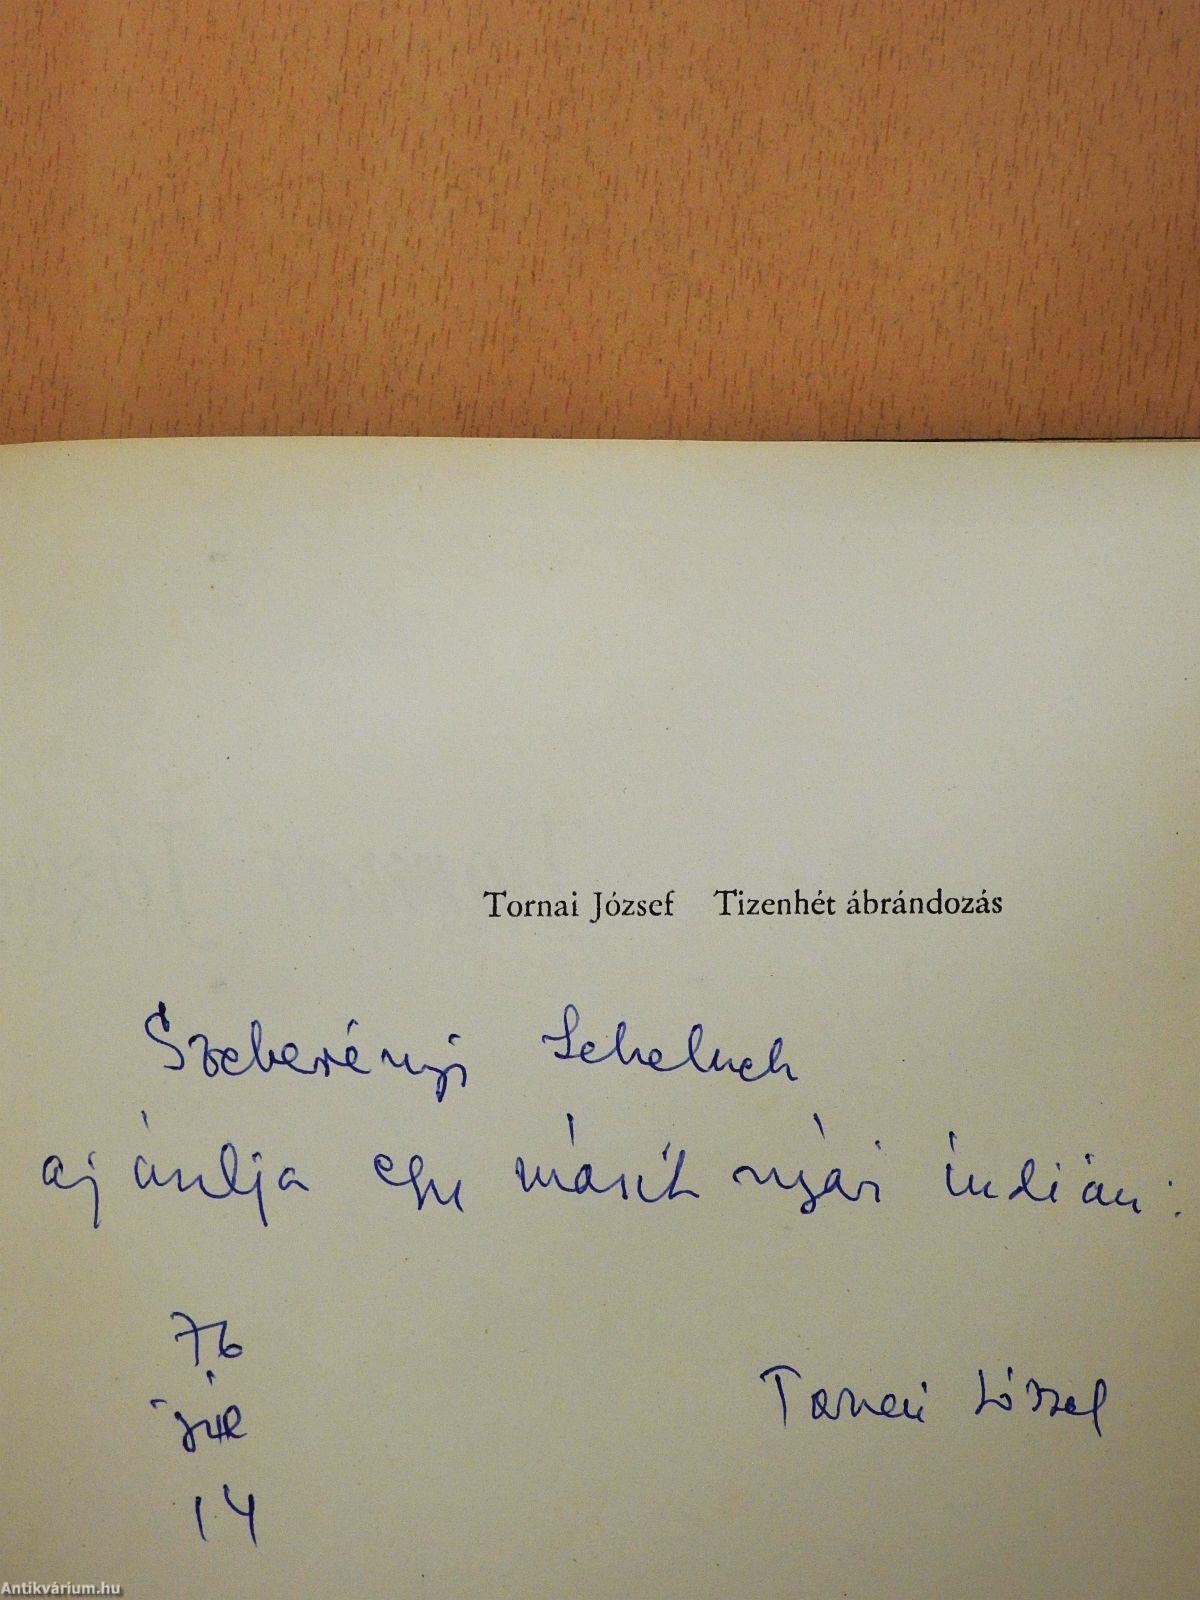 Tornai József Tizenhét ábrándozás
Szeberényi Lehelnek
ajánlja egy másik nyári indián:
76
júl
14
Tornai József
Antikvárium.hu